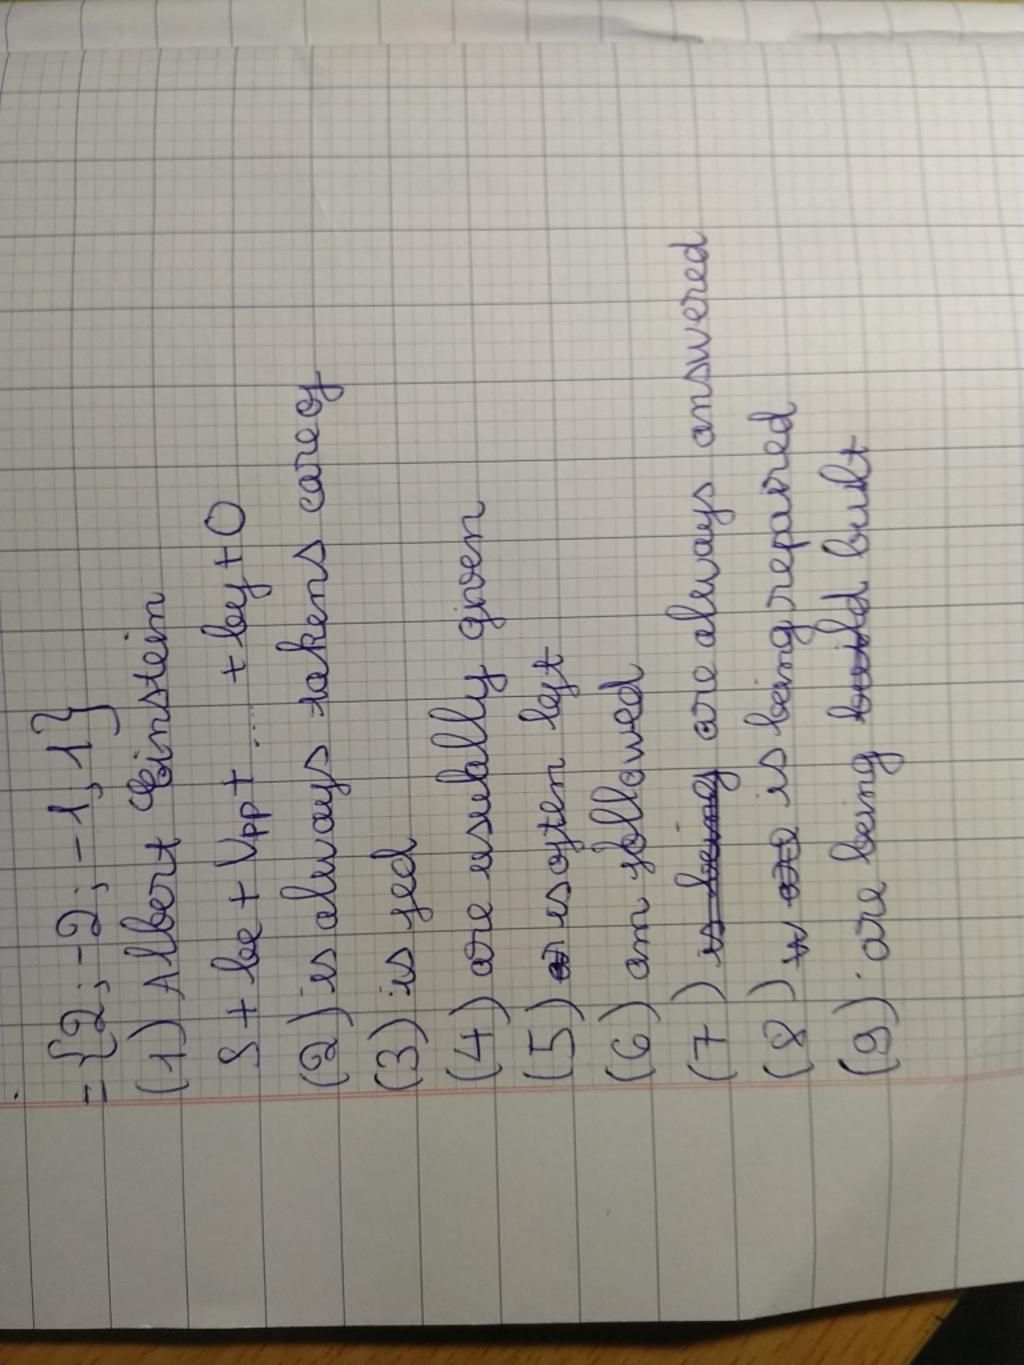 = {2; -2; -1; 1}
(1) Albert Einstein
S + be + Vpp + .... + by + O
(2) is always takens care of
(3) is fed
(4) are usually given
(5) is often left
(6) am followed
(7) is being are always answered
(8) is being repaired
(9) are being build built